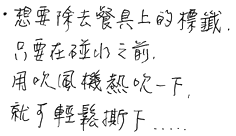 ・想要除去餐具上的標籤.
只要在碰水之前.
用吹風機熱吹一下,
就可輕鬆撕下.....